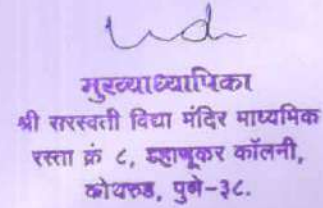 मुख्याध्यापिका
श्री सरस्वती विद्या मंदिर माध्यमिक
रस्ता क्रं ८, डहाणूकर कॉलनी,
कोथरुड, पुणे-३८.